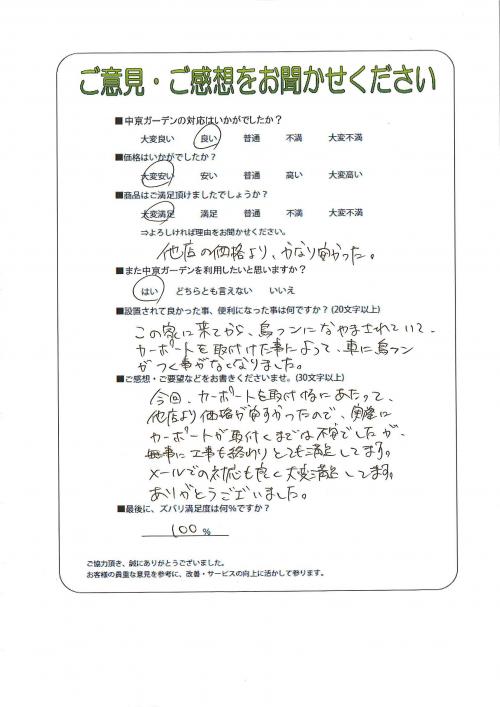 ご意見・ご感想をお聞かせください
■中京ガーデンの対応はいかがでしたか？
大変良い 良い 普通 不満 大変不満
■価格はいかがでしたか？
大変安い 安い 普通 高い 大変高い
■商品はご満足頂けましたでしょうか？
大変満足 満足 普通 不満 大変不満
⇒よろしければ理由をお聞かせください。
他店の価格より、かなり安かった。
■また中京ガーデンを利用したいと思いますか？
はい どちらとも言えない いいえ
■設置されて良かった事、便利になった事は何ですか？(20文字以上)
この家に来てから、鳥フンになやまされていて、
カーポートを取付けた事によって、車に鳥フン
がつく事がなくなりました。
■ご感想・ご要望などをお書きくださいませ。(30文字以上)
今回、カーポートを取付けるにあたって、
他店より価格が安すかったので、実際に
カーポートが取付くまでは不安でしたが、
無事に工事も終わりとても満足してます。
メールでの対応も良く大変満足してます。
ありがとうございました。
■最後に、ズバリ満足度は何％ですか？
100 %
ご協力頂き、誠にありがとうございました。
お客様の貴重な意見を参考に、改善・サービスの向上に活かして参ります。